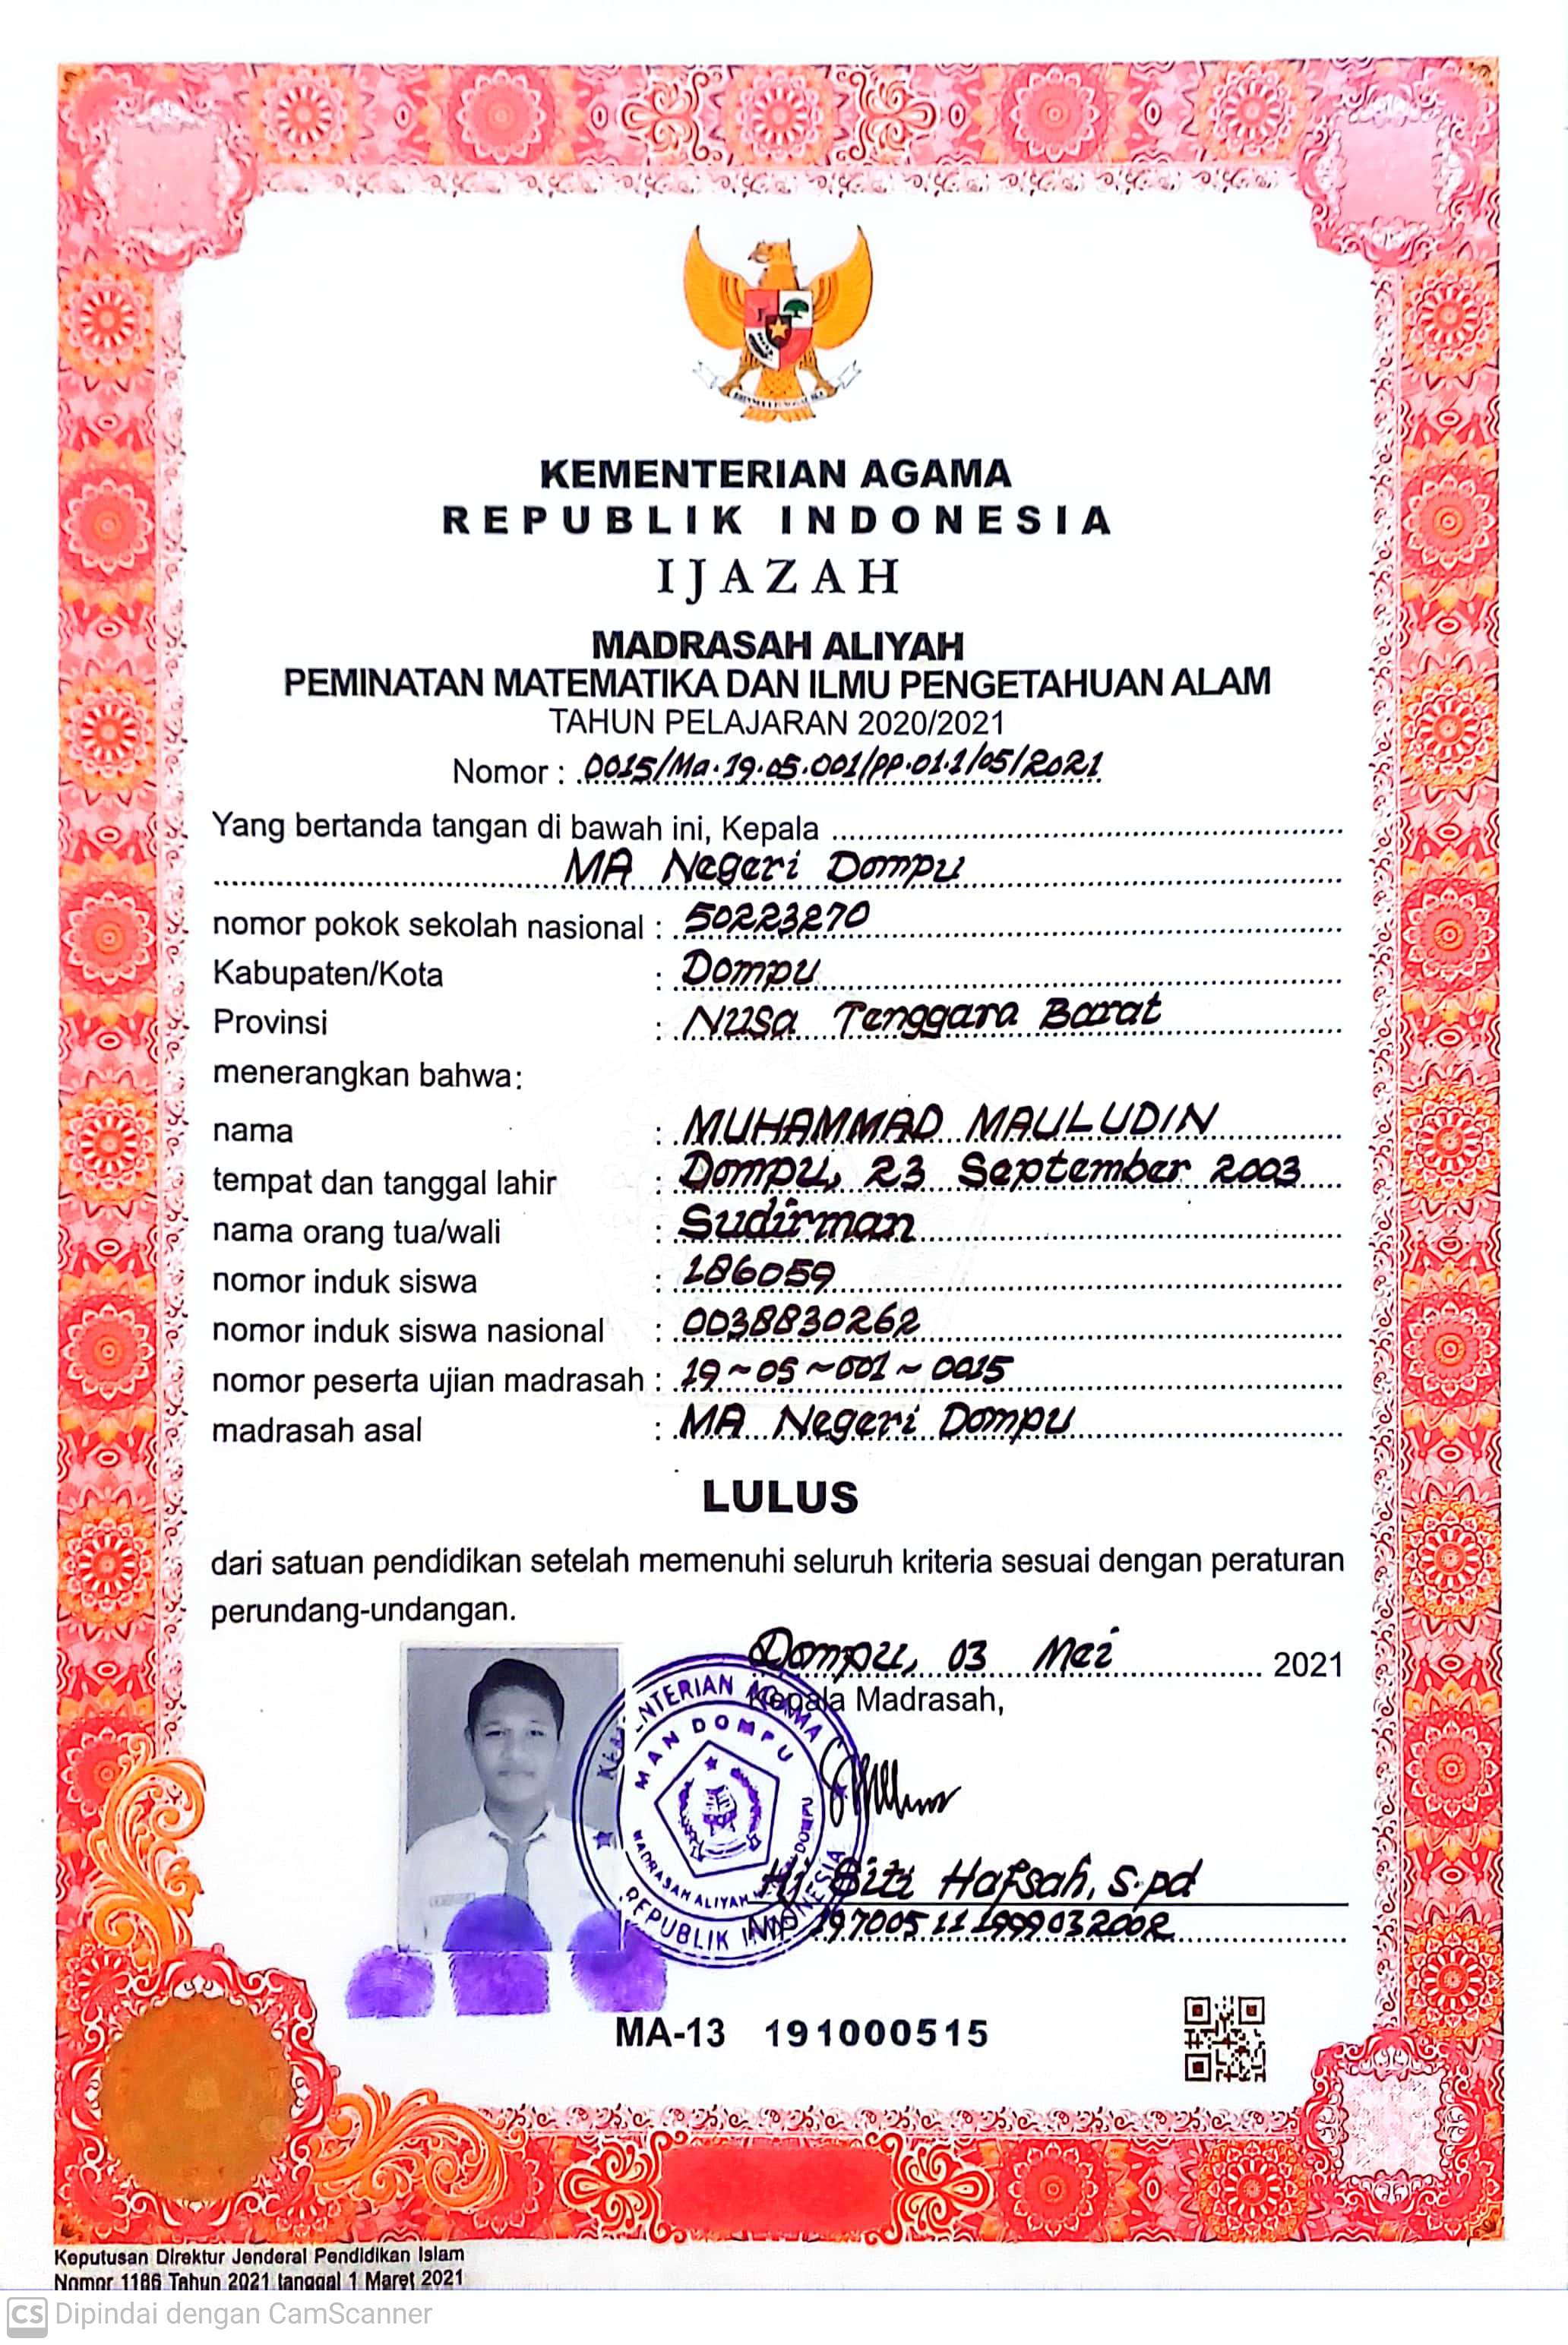 KEMENTERIAN AGAMA
REPUBLIK INDONESIA
IJAZAH
MADRASAH ALIYAH
PEMINATAN MATEMATIKA DAN ILMU PENGETAHUAN ALAM
TAHUN PELAJARAN 2020/2021
Nomor : 0015/Ma.19.05.001/PP.01.1/05/2021
Yang bertanda tangan di bawah ini, Kepala
MA Negeri Dompu
nomor pokok sekolah nasional : 50223270
Kabupaten/Kota : Dompu
Provinsi : Nusa Tenggara Barat
menerangkan bahwa:
nama : MUHAMMAD MAULUDIN
tempat dan tanggal lahir : Dompu, 23 September 2003
nama orang tua/wali : Sudirman
nomor induk siswa : 186059
nomor induk siswa nasional : 0038830262
nomor peserta ujian madrasah : 19~05~001~0015
madrasah asal : MA Negeri Dompu
LULUS
dari satuan pendidikan setelah memenuhi seluruh kriteria sesuai dengan peraturan
perundang-undangan.
Dompu, 03 Mei 2021
Kepala Madrasah,
KEMENTERIAN AGAMA
MAN DOMPU
MADRASAH ALIYAH DOMPU
REPUBLIK INDONESIA
Hj. Siti Hafsah, S.pd
NIP 197005111999032002
MA-13 191000515
Keputusan Direktur Jenderal Pendidikan Islam
Nomor 1186 Tahun 2021 tanggal 1 Maret 2021
CS Dipindai dengan CamScanner